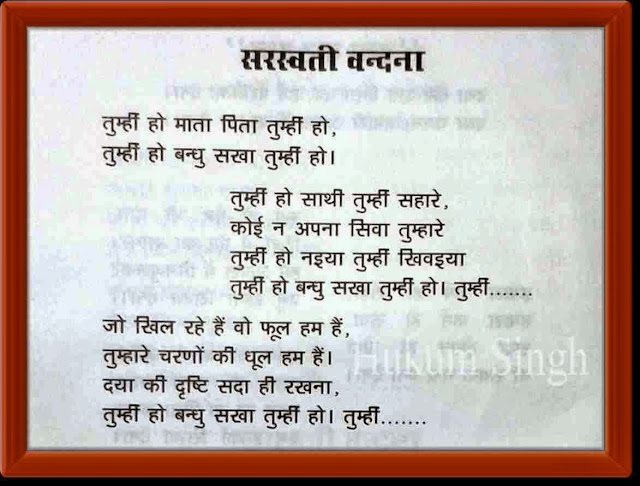 सरस्वती वन्दना
तुम्हीं हो माता पिता तुम्हीं हो,
तुम्हीं हो बन्धु सखा तुम्हीं हो।
तुम्हीं हो साथी तुम्हीं सहारे,
कोई न अपना सिवा तुम्हारे
तुम्हीं हो नइया तुम्हीं खिवइया
तुम्हीं हो बन्धु सखा तुम्हीं हो। तुम्हीं.......
जो खिल रहे हैं वो फूल हम हैं,
तुम्हारे चरणों की धूल हम हैं।
दया की दृष्टि सदा ही रखना,
तुम्हीं हो बन्धु सखा तुम्हीं हो। तुम्हीं.......
Hukum Singh